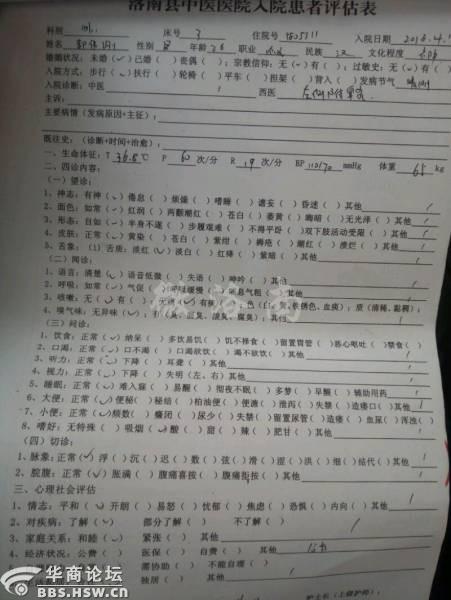 洛南县中医医院入院患者评估表
科别 床号 3 住院号 入院日期 2016.4.
姓名 性别 男 年龄 职业 民族 汉 文化程度
婚姻状况：未婚（✓）已婚（ ）丧偶（ ）；宗教信仰：无（✓）有（ ）；过敏史：无（✓）有（
入院方式：步行（✓）扶行（ ）轮椅（ ）平车（ ）担架（ ）背入（ ）发病节气 清明
入院诊断：中医 西医
主诉：
主要病情（发病原因+主征）：
既往史：（诊断+时间+治愈）：
一、生命体征：T 36.8℃ P 60 次/分 R 19 次/分 BP 110/70 mmHg 体重 65 kg
二、四诊内容：
（一）望诊：
1、神志：有神（✓）倦怠（ ）烦燥（ ）嗜睡（ ）谵妄（ ）昏迷（ ）其他
2、面色：如常（✓）红润（ ）两颧潮红（ ）苍白（ ）萎黄（ ）晦暗（ ）无光泽（ ）其他
3、形态：自如（✓）半身不遂（ ）步履艰难（ ）不得平卧（ ）双下肢活动受限（ ）其他
4、皮肤：正常（✓）黄染（ ）苍白（ ）紫绀（ ）痈疮（ ）潮红（ ）溃烂（ ）其他
5、舌象：（1）舌质：淡红（✓）淡白（ ）红绛（ ）紫暗（ ）其他
（二）闻诊：
1、语言：清楚（✓）语音低微（ ）失语（ ）呻吟（ ）其他
2、呼吸：如常（✓）气促（ ）缓慢（ ）气粗（ ）其他
3、咳嗽：无（✓）有（ ）有痰（ ）色（白、黄、铁锈色、血痰）；质（清稀、黏稠）；
4、嗅气味：无异味（✓）有（ 臭、腐臭）；其他
（三）问诊：
1、饮食：正常（✓）纳呆（ ）多饮易饥（ ）饥不择食（ ）留置胃管（ ）恶心呕吐（ ）禁食（ ）
2、口渴：正常（✓）口渴（ ）口不渴（ ）渴不欲饮（ ）其他
3、听力：正常（✓）下降（ ）耳聋（ ）其他
4、视力：正常（✓）下降（ ）失明（左、右）其他
5、睡眠：正常（✓）难入寐（ ）易醒（ ）彻夜不眠（ ）多梦（ ）早醒（ ）辅助用药
6、大便：正常（✓）便秘（ ）秘结（ ）柏油便（ ）便溏（ ）泄泻（ ）失禁（ ）造瘘口（ ）其他
7、小便：正常（✓）频数（ ）癃闭（ ）尿少（ ）失禁（ ）留置尿管（ ）造瘘（ ）血尿（ ）浑浊（
8、嗜好：无特殊（✓）吸烟（ ）酸（ ）甜（ ）辣（ ）肥甘（ ）其他
（四）切诊：
1、脉象：正常（✓）浮（ ）沉（ ）迟（ ）数（ ）弦（ ）滑（ ）涩（ ）洪（ ）细（ ）结代（ ）其他
2、脘腹：正常（✓）胀满（ ）腹痛喜按（ ）腹痛拒按（ ）其他
三、心理社会评估
1、情志：平和（✓）开朗（ ）易怒（ ）忧郁（ ）焦虑（ ）恐惧（ ）内向（ ）其他
2、对疾病：了解（✓） 部分了解（ ） 不了解（ ）
3、家庭关系：和睦（✓） 紧张（ ） 其他
4、经济状况：公费（ ） 医保（ ） 自费（ ） 其他
需协助（ ） 不能自理（ ）
独居（ ） 其他
微洛南
华商论坛
BBS.HSW.CN